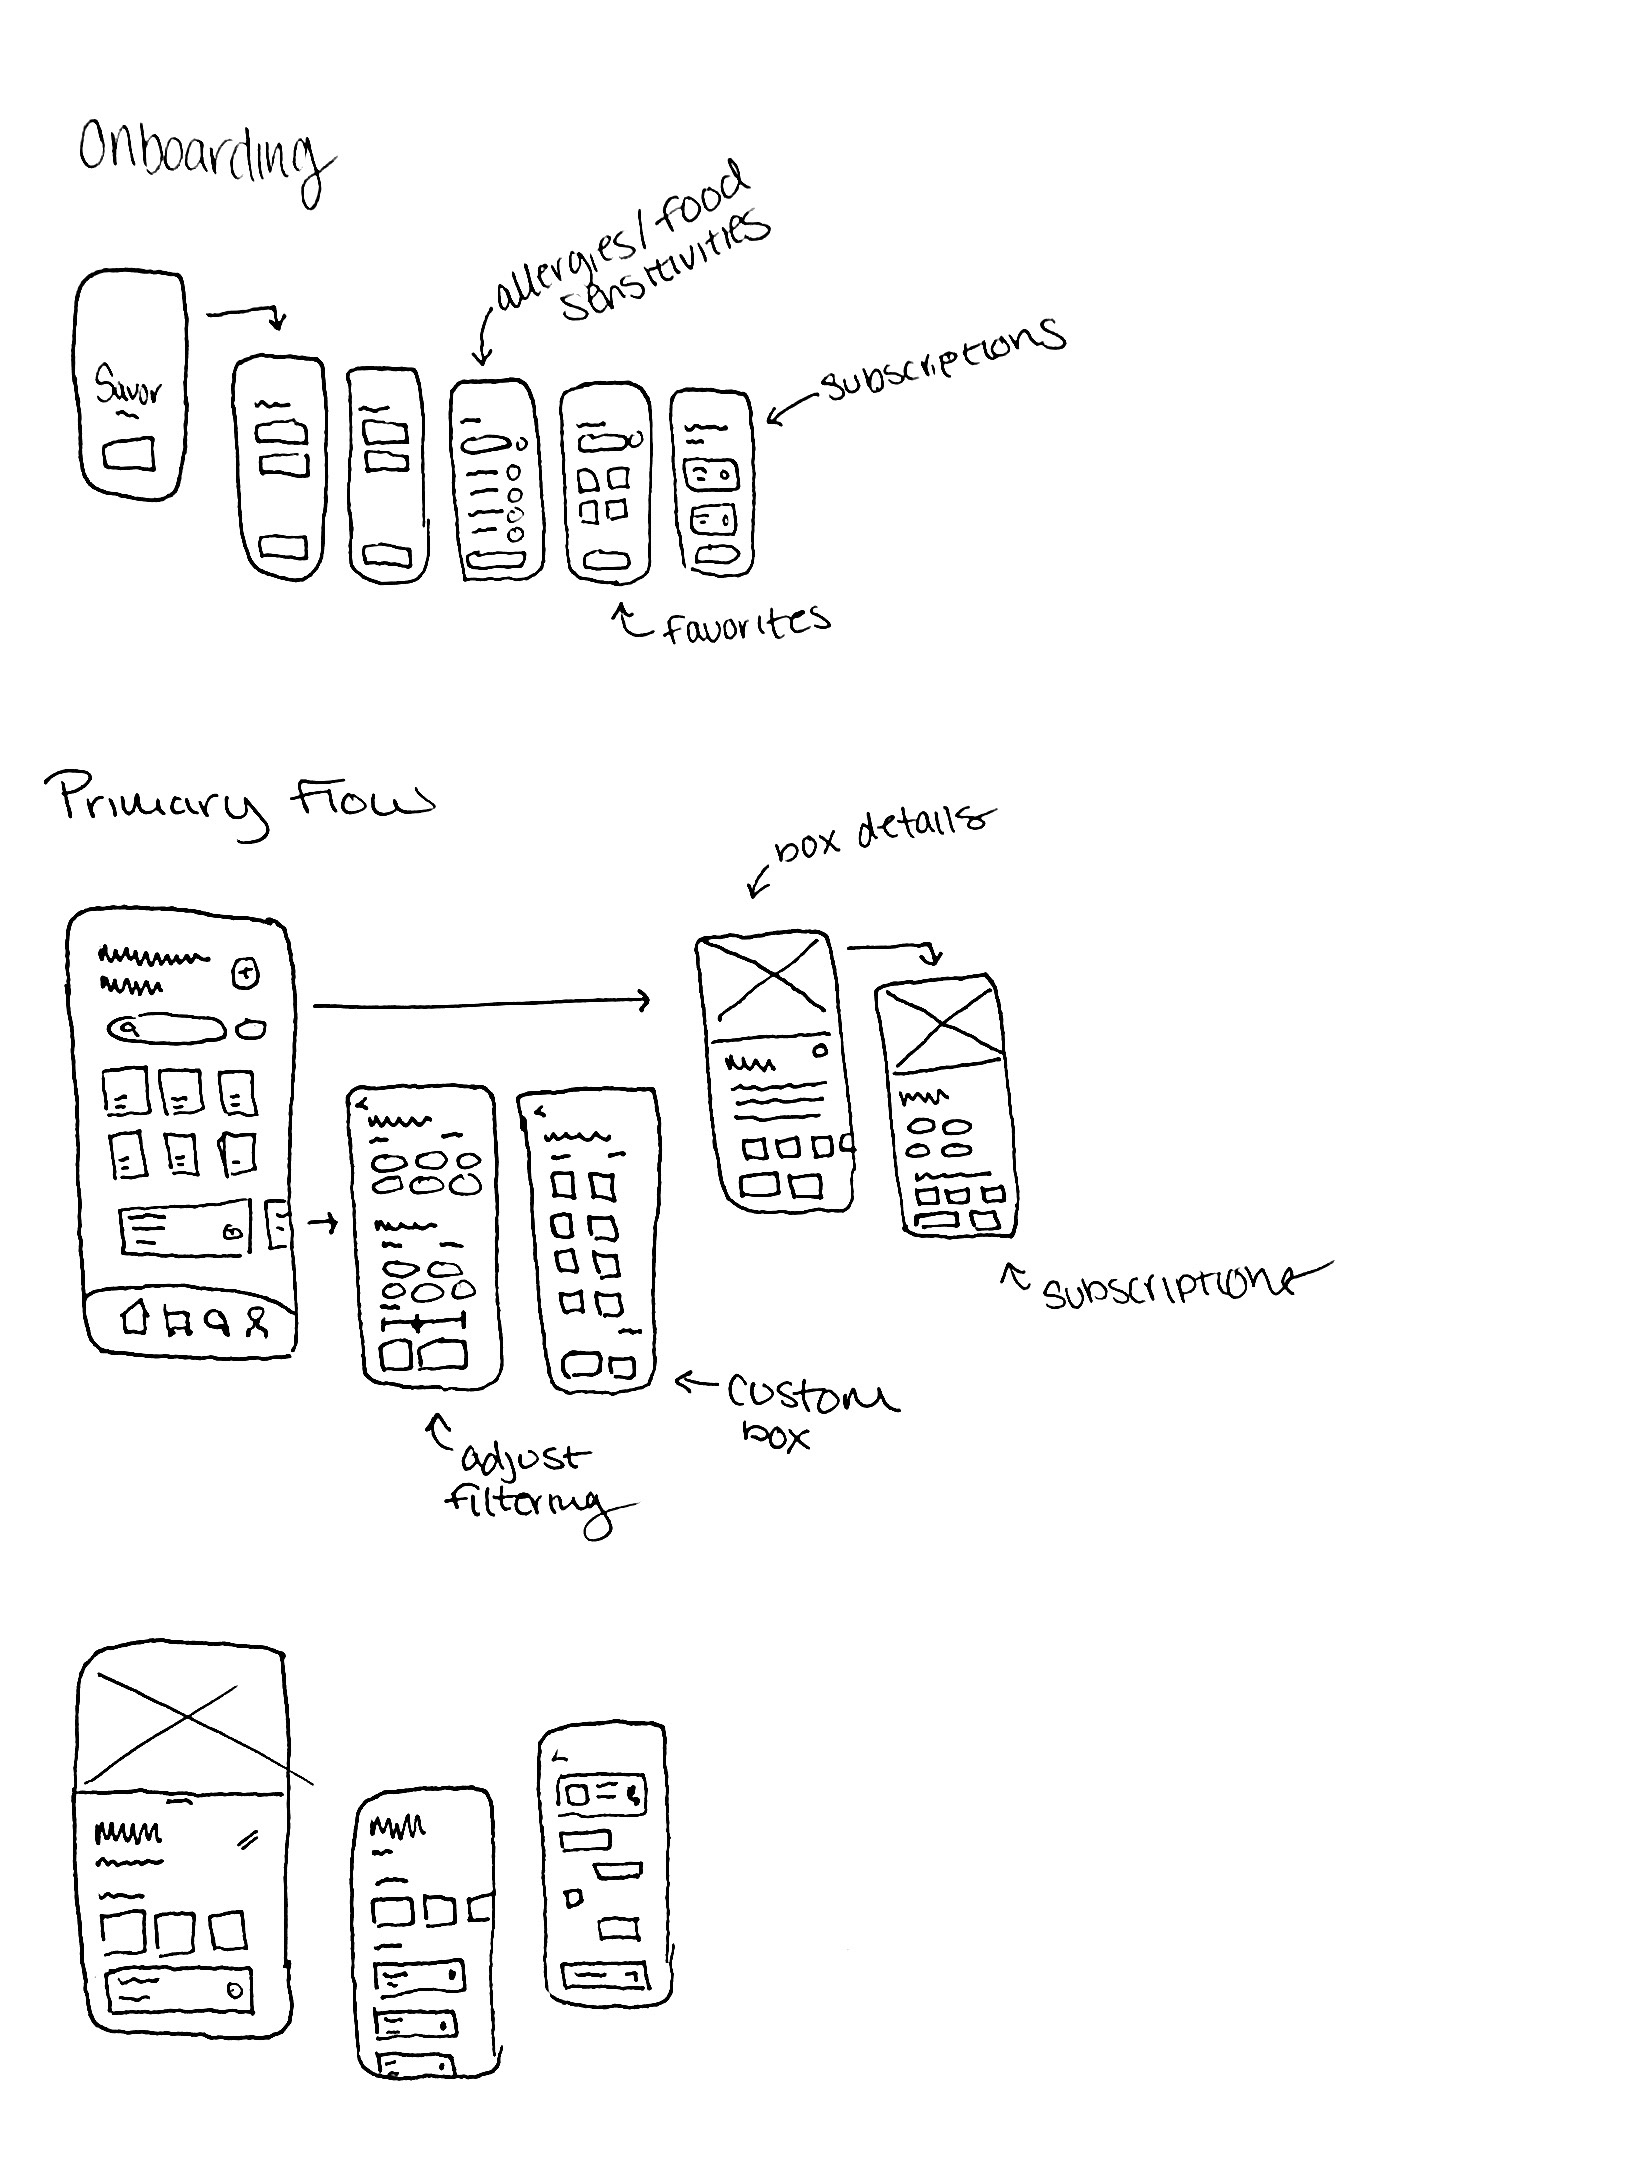 Onboarding
allergies/food
sensitivities
Savor
subscriptions
favorites
Primary Flow
box details
subscriptions
custom
box
adjust
filtering